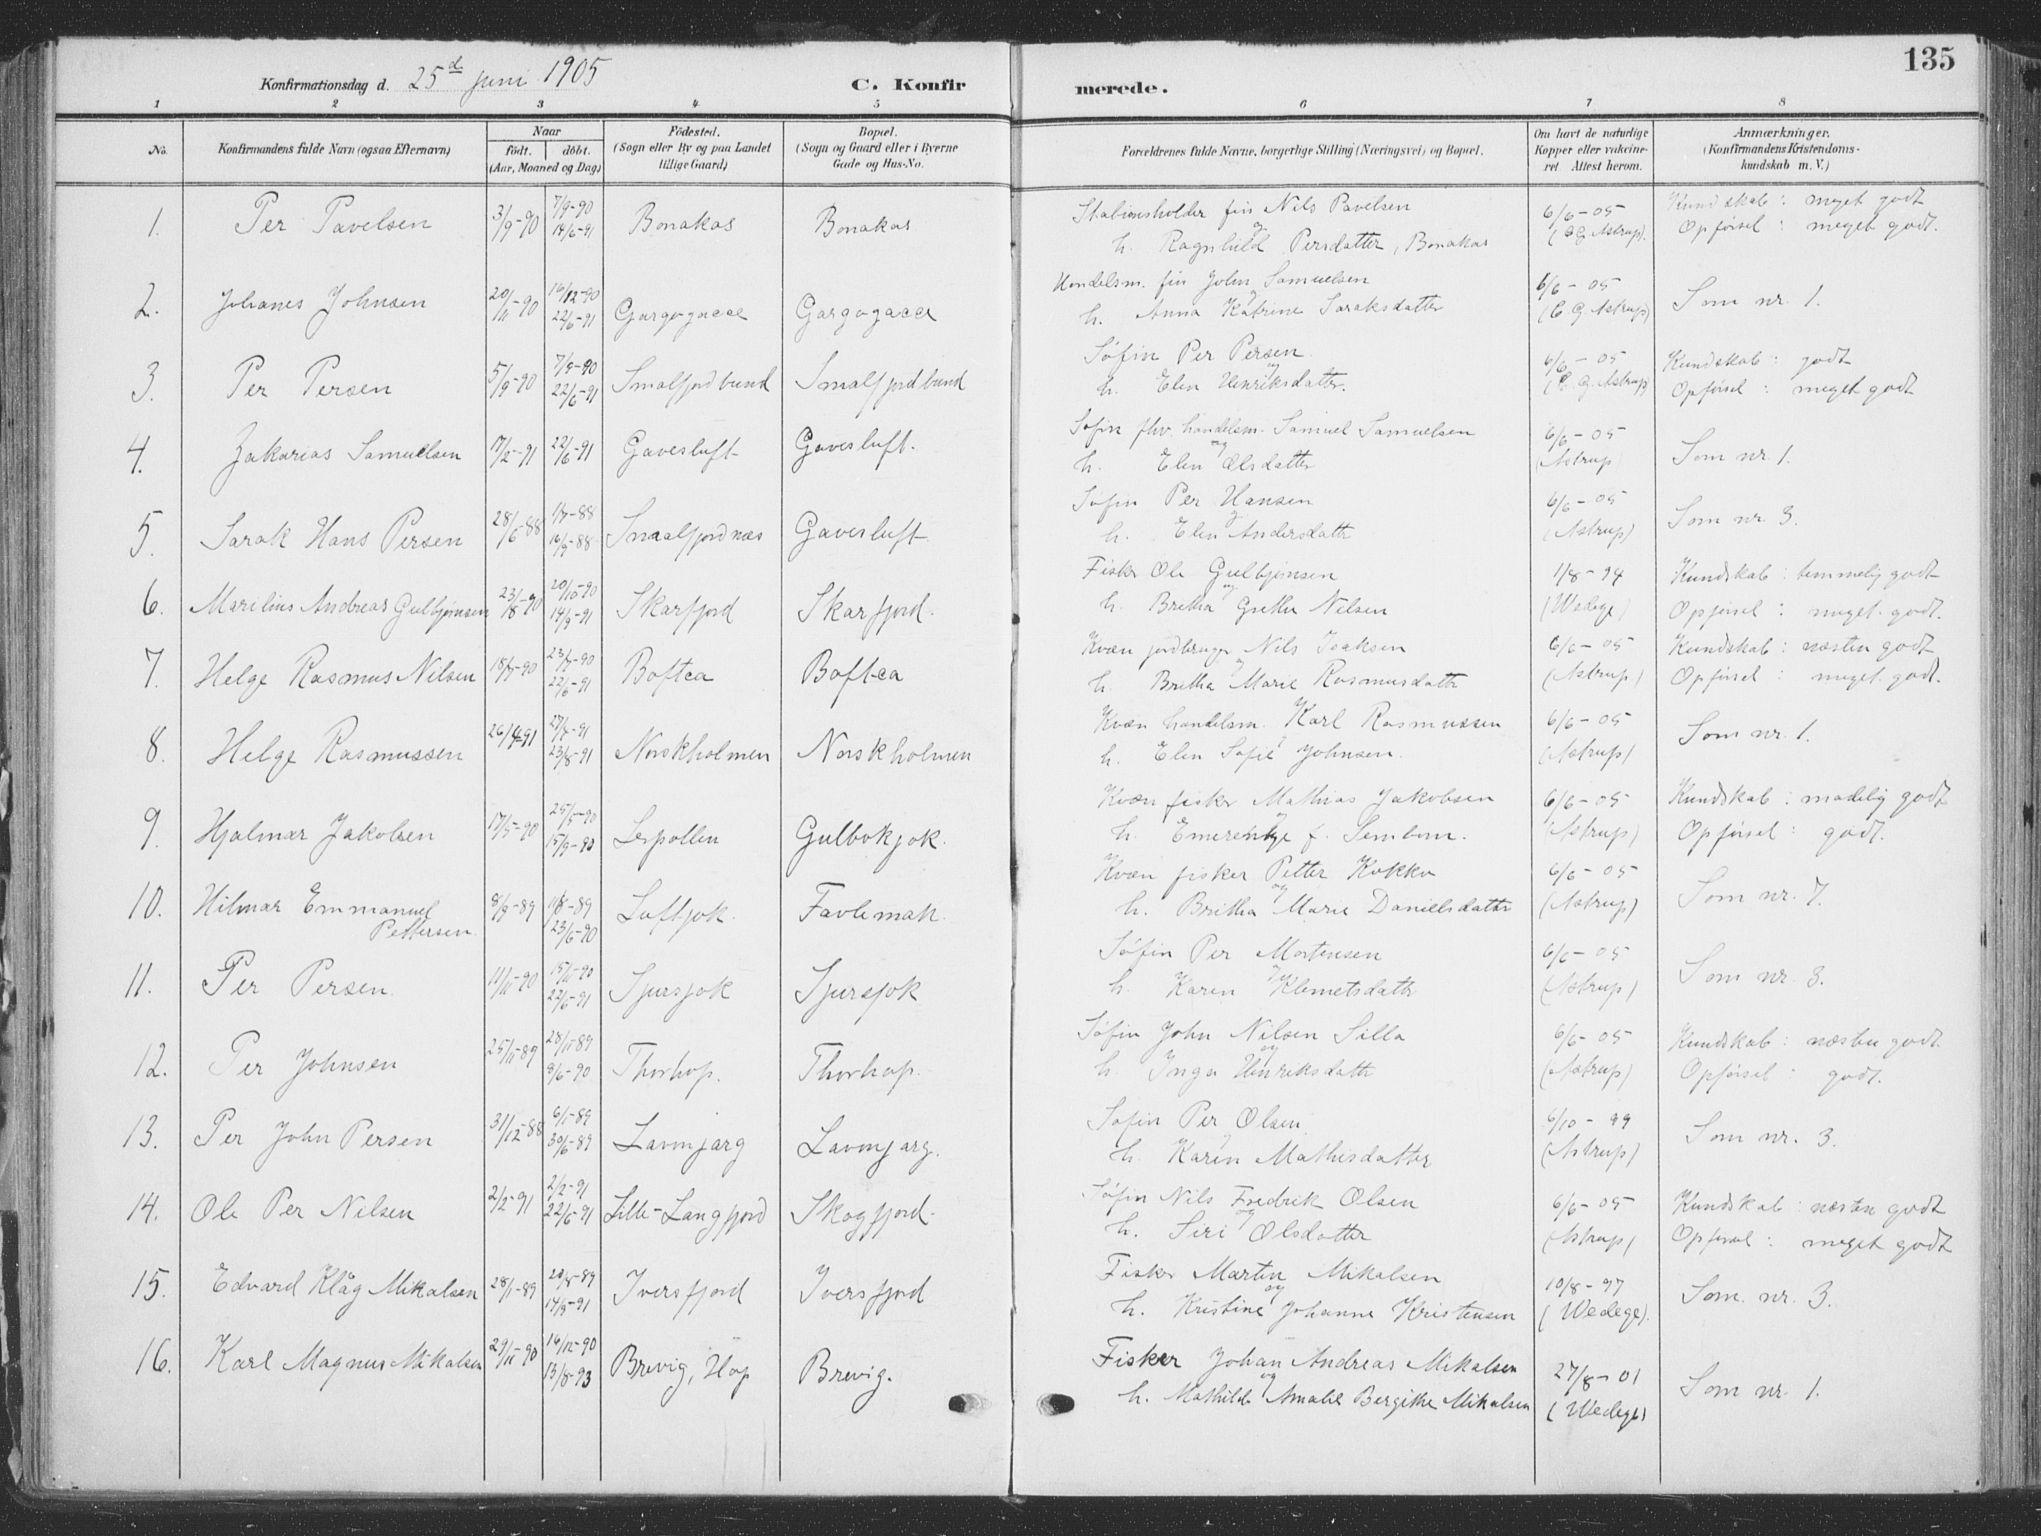 135
Konfirmationsdag d. 25d juni 1905 C. Konfirmerede.
1 2 3 4 5 6 7 8
No. Konfirmandens fulde Navn (ogsaa Efternavn) Naar født. døbt. (Aar, Maaned og Dag) Födested. (Sogn eller By og paa Landet tillige Gaard) Bopæl. (Sogn og Gaard eller i Byerne Gade og Hus-No. Forældrenes fulde Navne, borgerlige Stilling (Næringsvei) og Bopæl. Om havt de naturlige Kopper eller vakcineret Attest herom. Anmærkninger. (Konfirmandens Kristendomskundskab m. V.)
1. Per Pavelsen 3/9-90 7/9-90 14/6-91 Bonakas Bonakas Stationsholder fin Nils Pavelsen og h. Ragnhild Persdatter, Bonakas 6/6-05 (C G Astrup). Kundskab: meget godt Opførsel: meget godt.
2. Johanes Johnsen 20/11-90 16/12-90 22/6-91 Gargogæcce Gargogæcce Handelsm. fin John Samuelsen og h. Anna Katrine Saraksdatter 6/6-05 (C. G Astrup) Som nr. 1.
3. Per Persen 5/9-90 7/9-90 22/6-91 Smalfjordbund Smalfjordbund Søfin Per Persen og h. Elen Henriksdatter. 6/6-05 (C. G. Astrup) Kundskab: godt Opførsel: meget godt
4. Zakarias Samuelsen 17/2-91 22/6-91 Gavesluft Gavesluft. Søfin fhv. handelsm. Samuel Samuelsen og h. Elen Olsdatter 6/6-05 (Astrup) Som nr. 1.
5. Sarak Hans Persen 28/6-88 16/9-88 Smaalfjordnæs Gavesluft Søfin Per Hansen og h. Elen Andersdattr 6/6-05 (Astrup) Som nr 3.
6. Marilius Andreas Gulbjønsen 23/8-90 20/10-90 14/9-91 Skarfjord Skarfjord. Fisker Ole Gulbjønsen og h. Bretha Grethe Nilsen 1/8-94 (Wedege) Kundskab: temmelig godt Opførsel: meget godt.
7. Helge Rasmus Nilsen 18/7-90 23/7-90 22/6-91 Boftca Boftca Kvæn jordbruger Nils Isaksen og h. Britha Marie Rasmusdattr 6/6-05 (Astrup) Kundskab: næsten godt Opførsel: meget godt.
8. Helge Rasmussen 26/4-91 27/4-91 23/8-91 Norskholmen Norskholmen Kvæn handelsm. Karl Rasmussen og h. Elen Sofie Johnsen. 6/6-05 (Astrup) Som nr. 1.
9. Hjalmar Jakobsen 17/5-90 25/5-90 15/9-90 Lespollen Gulbokjok. Kvæn fisker Mathias Jakobsen og h. Emerentze f. 6/6-05 (Astrup) Kundskab: madelig godt Opførsel: godt.
10. Hilmar Emmanuel Pettersen 8/8-89 11/8-89 23/6-90 Luftjok. Favlemak. Kvæn fisker Petter Kokko og h. Britha Marie Danielsdattr 6/6-05 (Astrup) Som nr. 7.
11. Per Persen 11/11-90 15/11-90 22/6-91 Sjursjok Sjursjok Søfin Per Mortensen og h. Karen Klemetsdattr 6/6-05 (Astrup) Som nr. 3.
12. Per Johnsen 25/11-89 28/11-89 8/6-90 Thorhop. Thorhop. Søfin John Nilsen Silla og h. Inga Henriksdattr 6/6-05 (Astrup) Kundskab: næsten godt Opførsel: godt.
13. Per John Persen 31/12-88 6/1-89 30/6-89 Lavnjarg Lavnjarg. Søfin Per Olsen og h. Karen Mathisdatter 6/10-99 (Astrup) Som nr. 3.
14. Ole Per Nilsen 2/2-91 2/2-91 22/6-91 Lille-Langfjord Skogfjord. Søfin Nils Fredrik Olsen og h. Siri Olsdatter 6/6-05 (Astrup) Kundskab: næsten godt Opførsel: meget godt
15. Edvard Klåg Mikalsen 28/1-89 20/8-89 14/9-91 Iversfjord Iversfjord Fisker Martin Mikalsen og h. Kristine Johanne Kristensen 10/8-97 (Wedege). Som. nr. 3.
16. Karl Magnus Mikalsen 29/11-90 16/12-90 13/8-93 Brevig, Hop Brevig. Fisker Johan Andreas Mikalsen og h. Mathilde Amalie Bergithe Mikalsen 27/8-01 (Wedege) Som nr. 1.